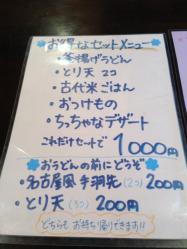 お得なセットメニュー
・釜揚げうどん
・とり天 2コ
・古代米ごはん
・おつけもの
・ちっちゃなデザート
これだけセットで 1000円
おうどんの前にどうぞ
・名古屋風手羽先(2コ)200円
・とり天(3コ)200円
どちらも お持ち帰りできます!!